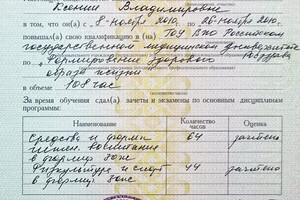 Ксении Владимировне
в том, что он(а) с „8 ноября 2010г. по „26 ноября 2010г.
повышал(а) свою квалификацию в (на) ГОУ ВПО Российском
государственном медицинском университете
по „Формирование здорового
образа жизни
в объеме 108 час
За время обучения сдал(а) зачеты и экзамены по основным дисциплинам
программы:
Наименование Количество часов Оценка
Средства и формы 64 зачтено
гигиен. воспитания
в формир ЗОЖ
Физкультура и спорт 44 зачтено
в формир ЗОЖ